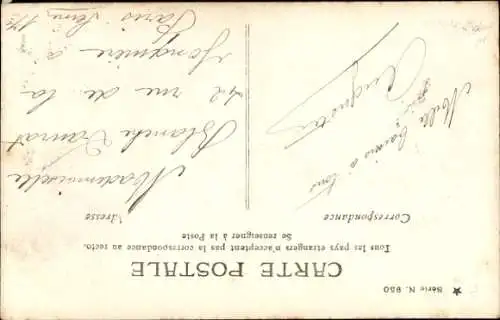 ★ Série N. 950
CARTE POSTALE
Tous les pays étrangers n'acceptent pas la correspondance au recto.
Se renseigner à la Poste
Correspondance
Adresse
Mille baisers à tous
Augusta
Mademoiselle
Blanche
42 rue de la
à
Paris